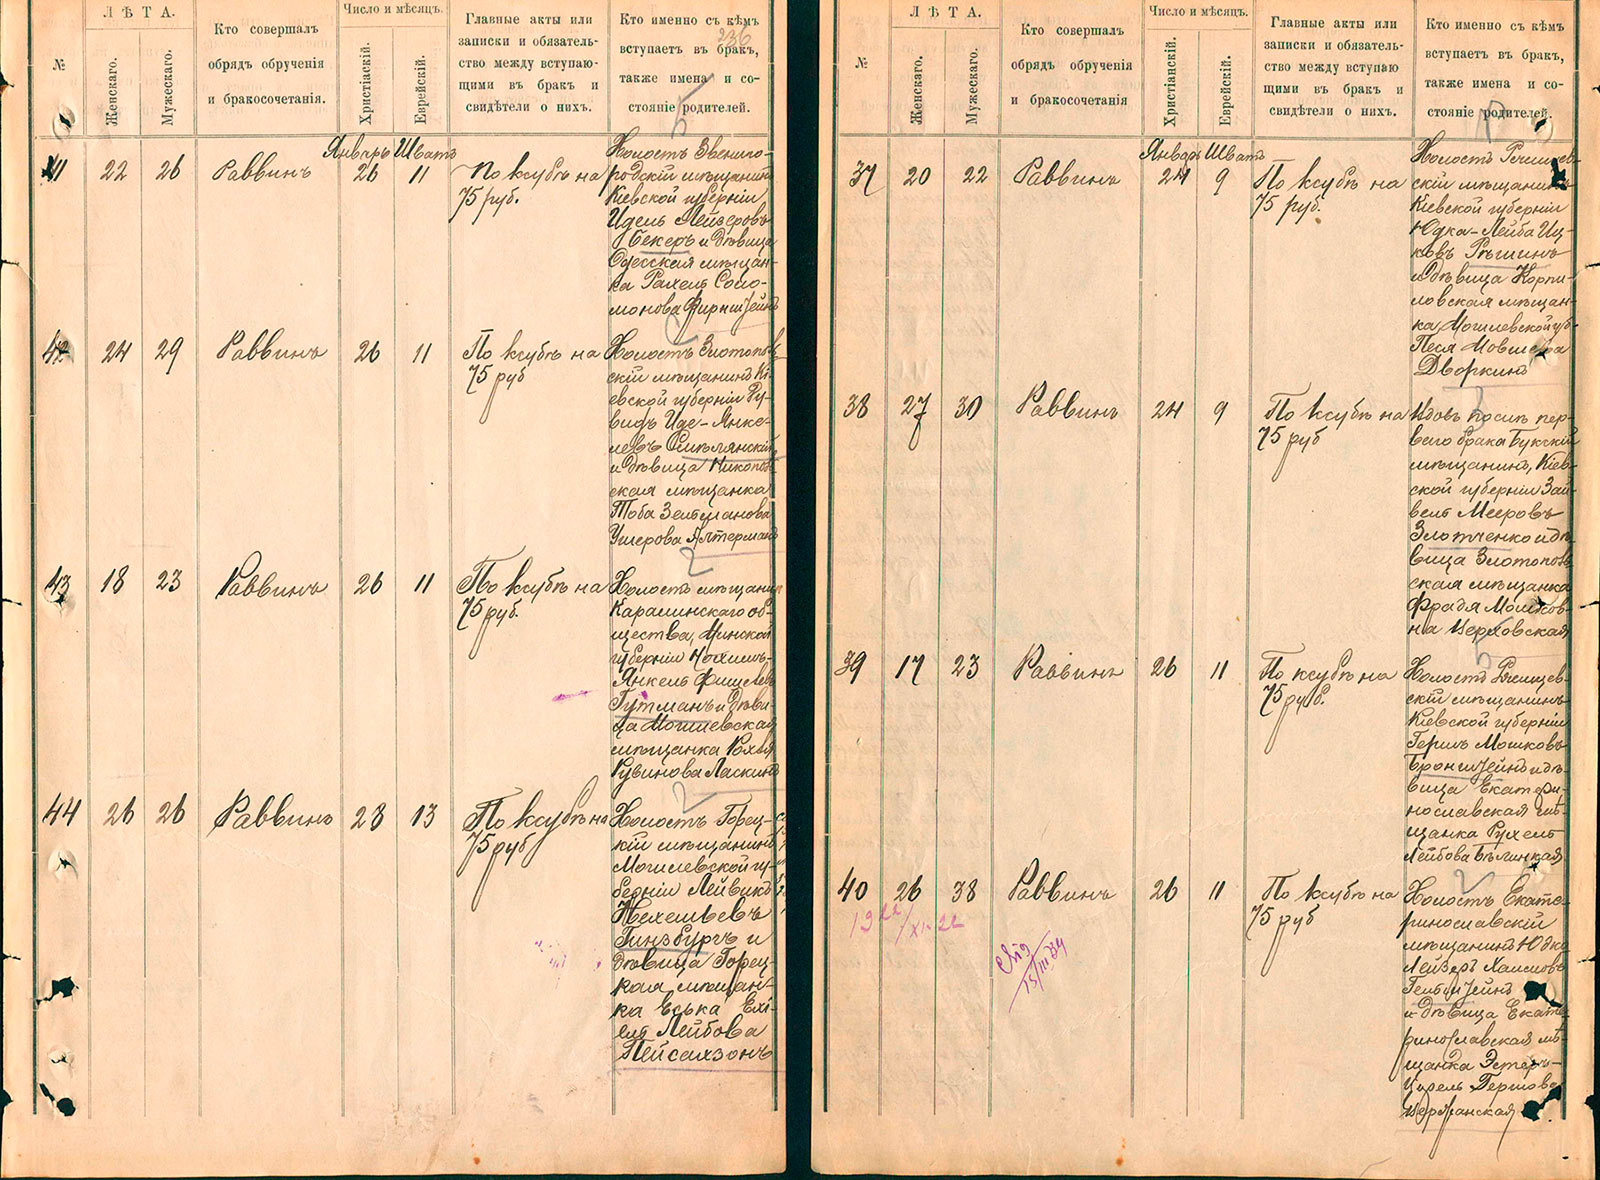 ЛѢТА.
Число и мѣсяцъ.
№
Женскаго.
Мужескаго.
Кто совершалъ
обрядъ обрученія
и бракосочетанія.
Христіаскій.
Еврейскій.
Главные акты или
записки и обязатель-
ство между вступаю-
щими въ бракъ и
свидѣтели о нихъ.
Кто именно съ кѣмъ
вступаетъ въ бракъ,
также имена и со-
стояніе родителей.
236
5
Январь Шватъ
41 22 26 Раввинъ 26 11 По ксубѣ на
75 руб.
Холостъ Звениго-
родскій мѣщанинъ
Кіевской губерніи
Идель Лейзеровъ
Бекеръ и дѣвица
Одесская мѣщан-
ка Рахель Соло-
монова
42 24 29 Раввинъ 26 11 По ксубѣ на
75 руб
Холостъ Златопол-
скій мѣщанинъ Кі-
евской губерніи Ду-
видъ Иде-Янке-
левъ Смѣлянскій
и дѣвица Никопол-
ская мѣщанка
Тоба Зельманова
Ушерова Алтерманъ
2
43 18 23 Раввинъ 26 11 По ксубѣ на
75 руб.
Холостъ мѣщанин
Каралинскаго об-
щества, Минской
губерніи Нохимъ-
Янкель Фишелевъ
Гутманъ и дѣви-
ца Могилевская
мѣщанка Рохля
Рувинова Ласкинъ
2
44 26 26 Раввинъ 28 13 По ксубѣ на
75 руб
Холостъ Горец-
кій мѣщанинъ
Могилевской гу-
берніи Лейвикъ
Нехемьевъ
Гинзбургъ и
дѣвица Горец-
кая мѣщан-
ка Еська Ехі-
еля Лейбова
Пейсахзонъ
ЛѢТА.
Число и мѣсяцъ.
№
Женскаго.
Мужескаго.
Кто совершалъ
обрядъ обрученія
и бракосочетанія
Христіанскій.
Еврейскій.
Главные акты или
записки и обязатель-
ство между вступаю
щими въ бракъ и
свидѣтели о нихъ.
Кто именно съ кѣмъ
вступаетъ въ бракъ,
также имена и со-
стояніе родителей.
Январь Шватъ
37 20 22 Раввинъ 24 9 По ксубѣ на
75 руб.
Холостъ
скій мѣщанинъ
Кіевской губерніи
Юдка-Лейба Иц-
ковъ
и дѣвица Корпи-
ловская мѣщан-
ка Могилевской губ-
Песя Мовшева
Дворкинъ
38 27 30 Раввинъ 24 9 По ксубѣ на
75 руб
Вдовъ послѣ пер-
ваго брака Букскій
мѣщанинъ, Кіев-
ской губерніи Зай-
вель Мееровъ
Злотченко и дѣ-
вица Златополь-
ская мѣщанка
Фрадя Мошков-
на Церковская
39 17 23 Раввинъ 26 11 По ксубѣ на
75 руб.
Холостъ
скій мѣщанинъ
Кіевской губерніи
Гершъ Мошковъ
Бронштейнъ и дѣ-
вица Екатери-
нославская мѣ-
щанка Рухель
Лейбова Бѣлинкая
2
40 26 38 Раввинъ 26 11 По ксубѣ на
75 руб
Холостъ Екате-
ринославскій
мѣщанинъ Юдка
Лейзеръ Хаимовъ
Гельштейнъ
и дѣвица Екате-
ринославская мѣ-
щанка Эстеръ-
Цирель Гершова
1922/XI-22
15/III 34